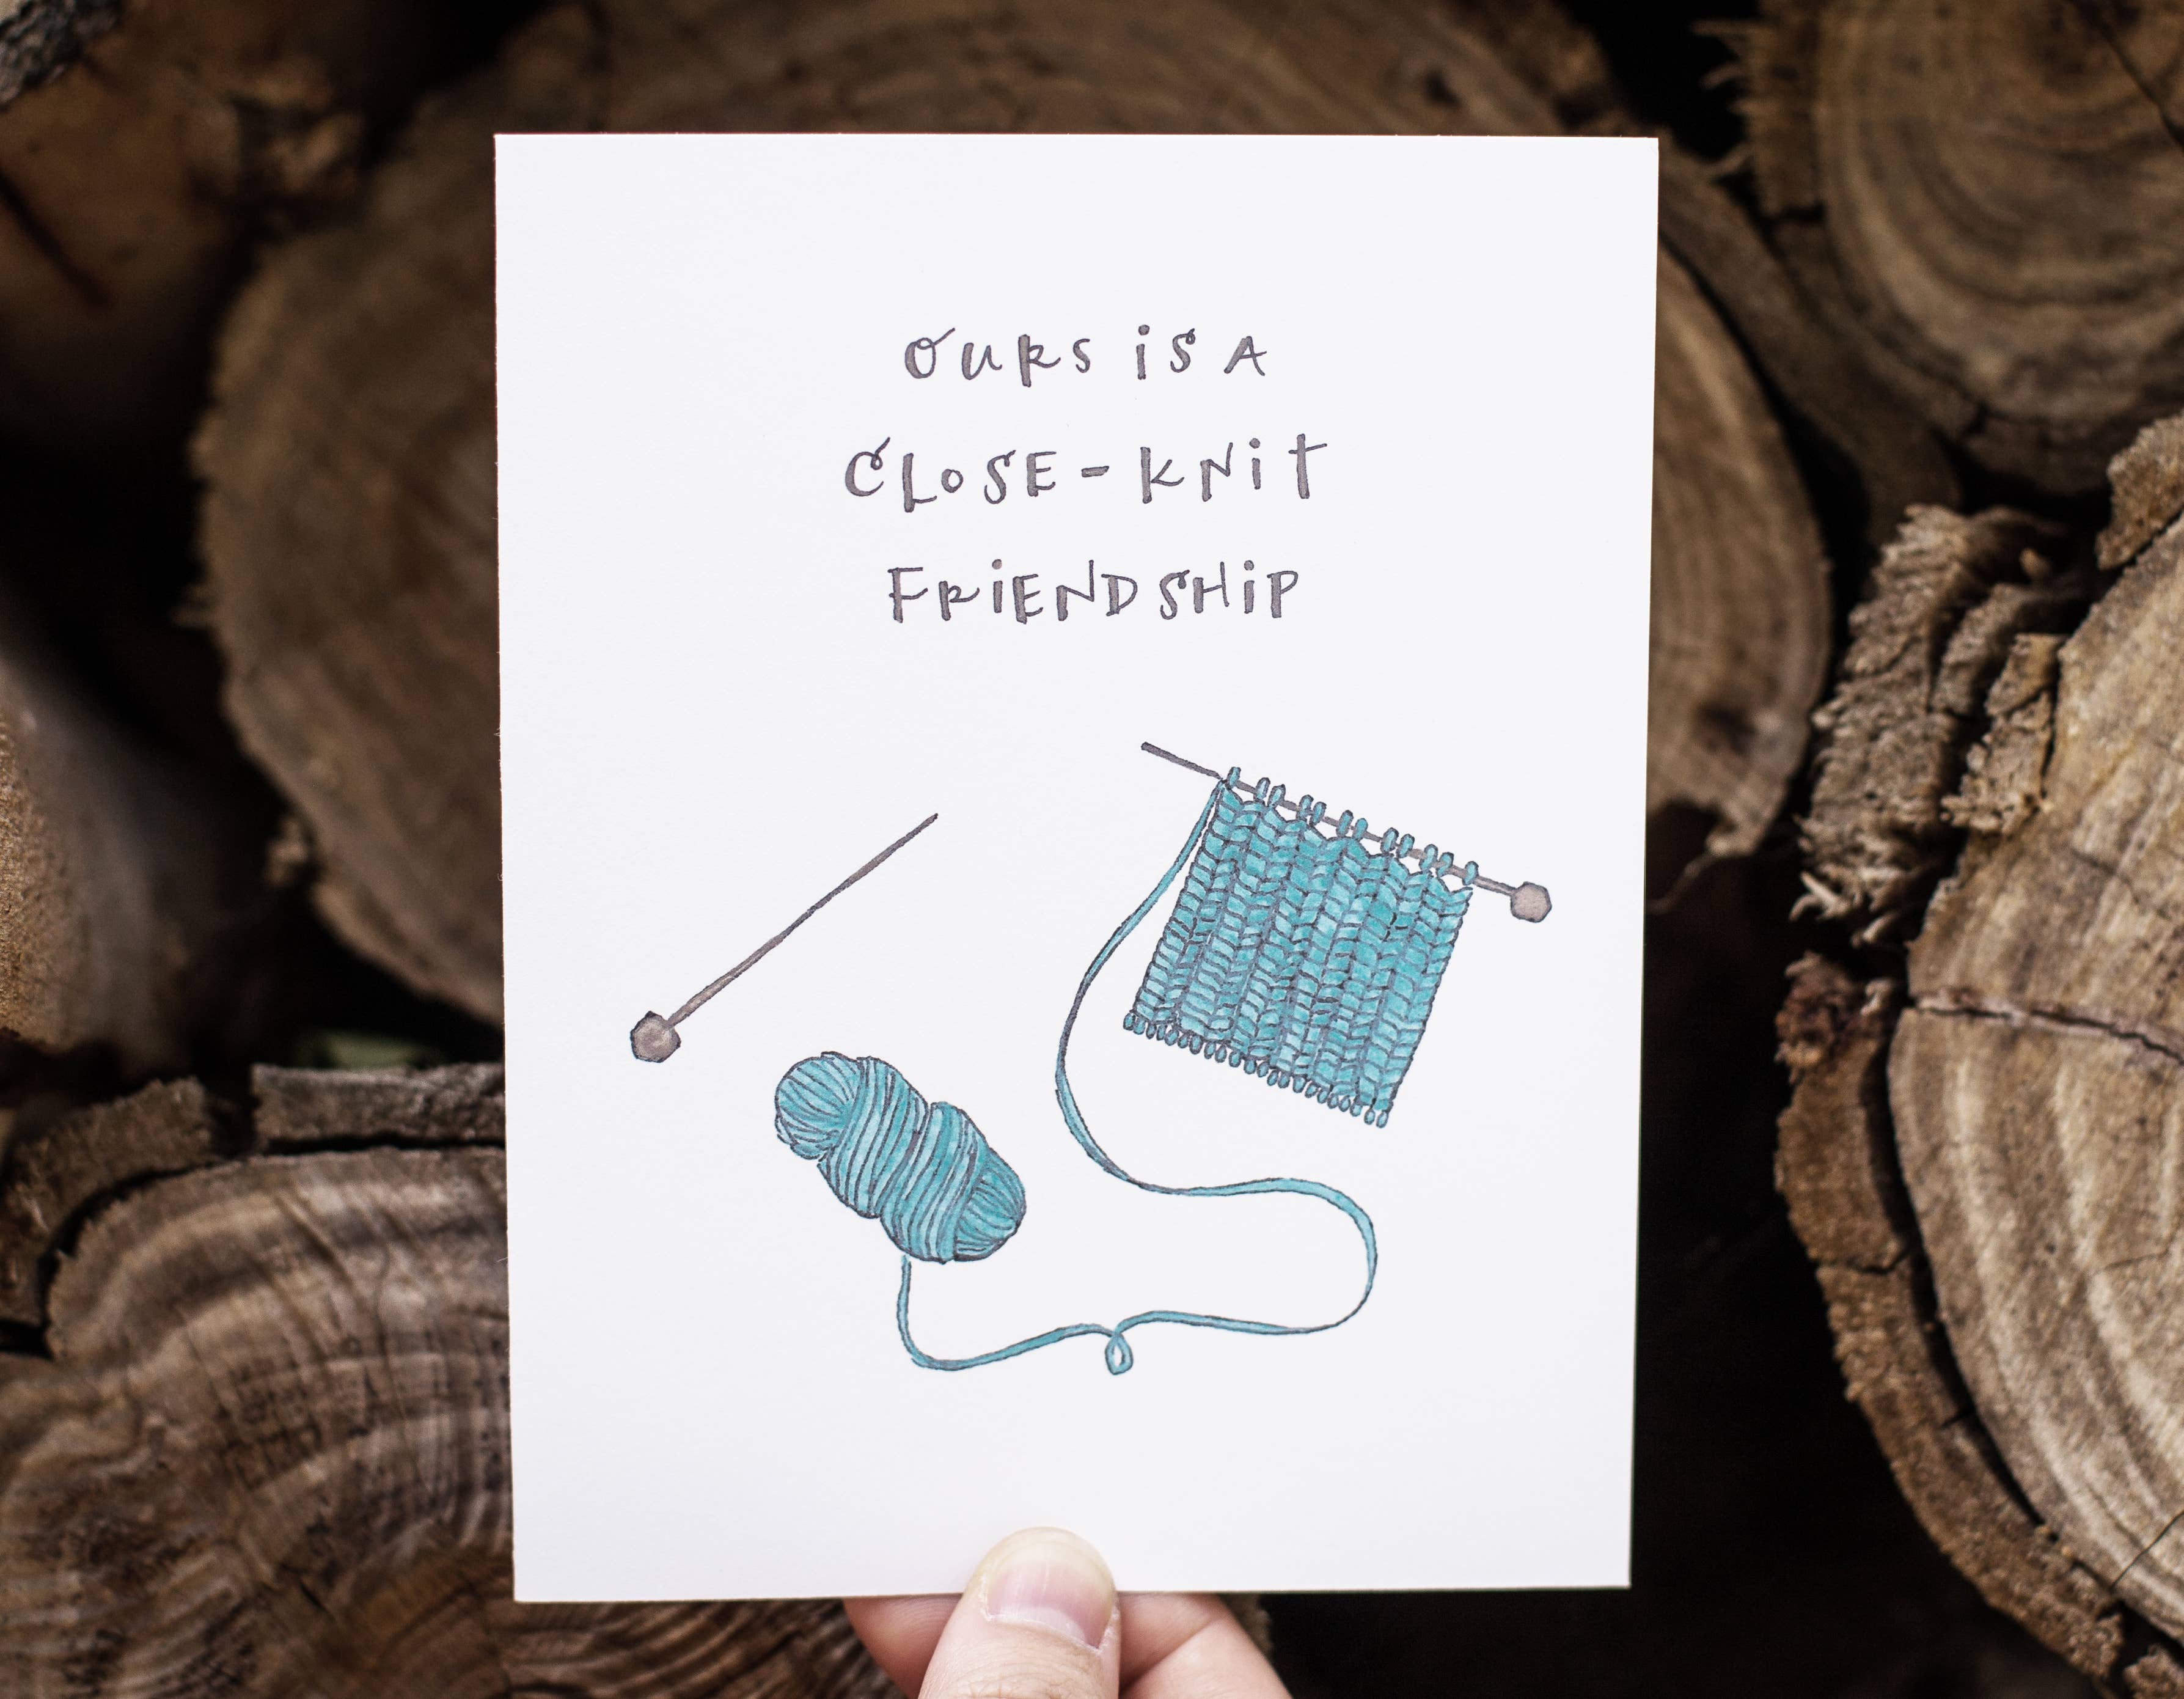 OURS iS A
CLOSE-KNiT
FRiENDSHiP